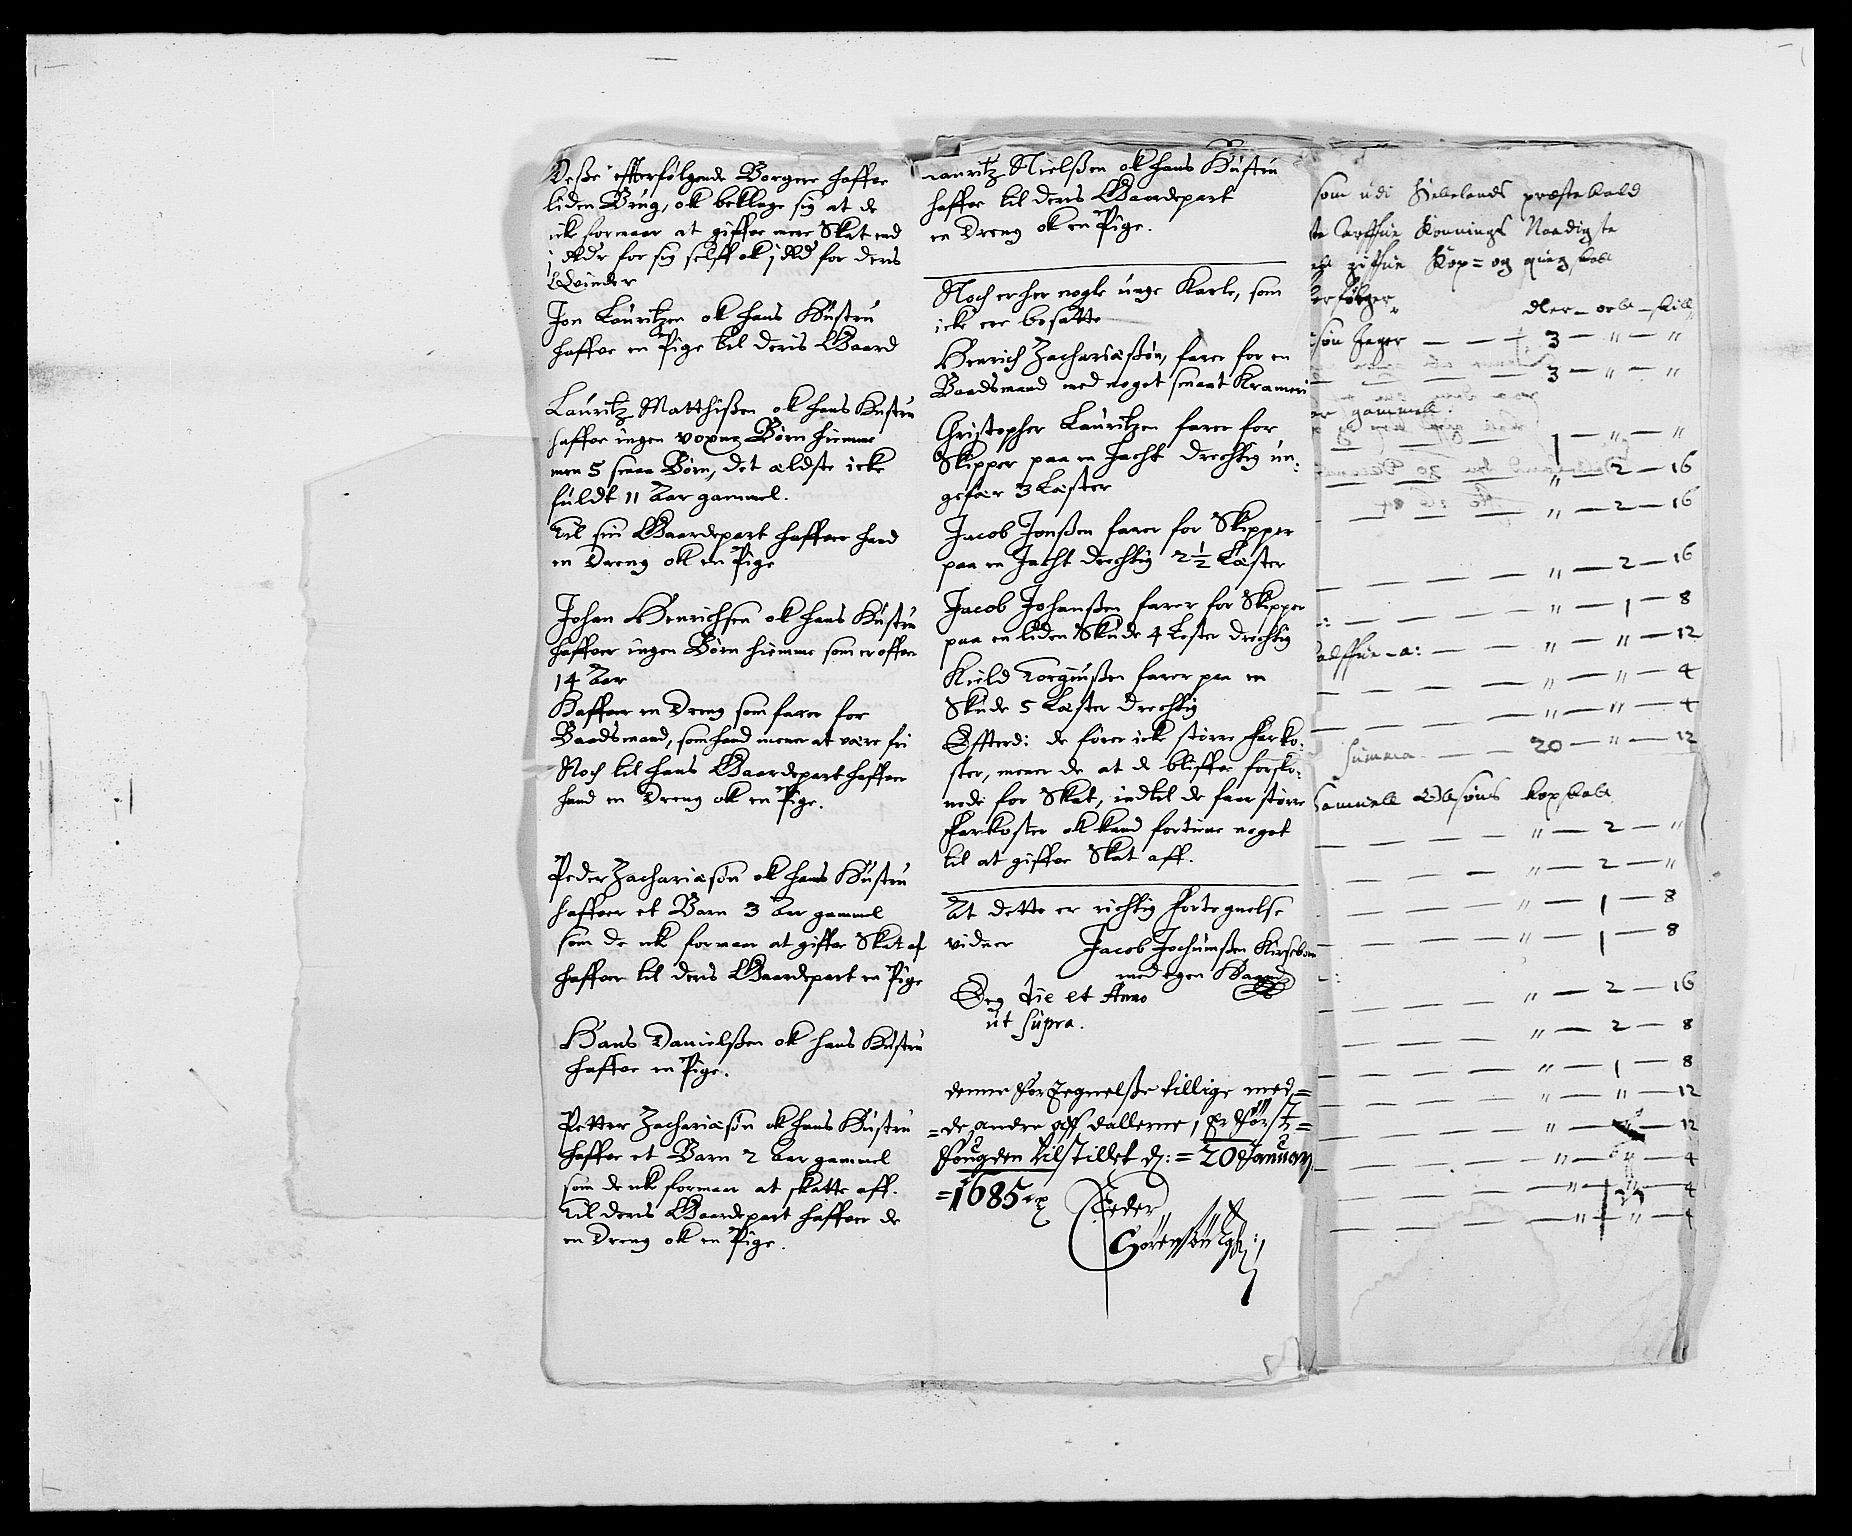 Desße effterfølgende Borgere haffve
liden Brug, ok beklage sig at de
icke formaar at giffve mere Skat end
j Rdr for sig selff ok j Rd for deris
Qvinder
Jon Lauritzen ok hans Hustru
haffver en Pige til deris Gaard
Lauritz Matthisßen ok hans Hustru
haffver ingen voxne Børn hiemme
men 5 smaa Børn, det ældste icke
fuldt 11 Aar gammel.
Til sin Gaardepart haffver hand
en Dreng ok en Pige
Johan Henrichsen ok hans Hustru
haffver ingen Børn hiemme som er offver
14 Aar
Haffver en Dreng som farer for
Baadsmand, som hand mener at være fri
Noch til hans Gaardepart haffver
hand en Dreng ok en Pige.
Peder Zachariæsøn ok hans Hustru
haffver et Barn 3 Aar gammel
som de icke formaar at giffve Skat af
haffver til deris Gaardepart en Pige
Hans Danielsßen ok hans Hustru
haffver en Pige.
Petter Zachariæsøn ok hans Hustru
haffver et Barn 2 Aar gammel
som de icke formaar at skatte aff.
Til deris Gaardepart haffver de
en Dreng ok en Pige.
Lauritz Nielsßen ok hans Hustru
haffver til deris Gaardepart
en Dreng ok en Pige.
Noch er her nogle unge Karle, som
icke ere besatte
Henrich Zachariæsßøn, farer for en
Baadsmand med noget smaat Krameri
Christopher Lauritzen farer for
Skipper paa en Jacht drechtig un:
gefær 3 Læster
Jacob Jonsßen farer for Skipper
paa en Jacht drechtig 2 1/2 Læster
Jacob Johansßen farer for Skipper
paa en liden Skude 4 Lester drechtig
Kield Torgiusßen farer paa en
Skude 5 Læster drechtig
Effterdi de fører icke større Farko:
ster, mener de at de bliffver forsko:
nede for Skat, indtil de faar større
Farkoster ok kand fortiene noget
til at giffve Skat aff.
At dette er richtig Fortegnelse
vidner Jacob Jochumsßen Kirsebom
med egen Haand
Die et Anno
ut supra.
denne Fortegnelsße tillige med =
= de andre aff dallerne, Er Først =
Fougden Tilstillet d: = 20 January
= 1685
Peder
Sørensßøn
som udi Hebelands præstekald
te Arffve Konnings Naadigste
giffve Kop = og quegskatt
erfølger dler – ort – skill
søn Jeger — — — 3 — " — "
— — — 3 — " — "
er gammell.
— — — 1 — " — "
— — — " — 2 — 16
— — — " — 2 — 16
— — — " — 2 — 16
— — — " — 1 — 8
— — — " — " — 12
— — — " — " — 4
— — — " — " — 4
Summa — — 20 — " — 12
Samuell Olsøns kopskatt
— — — " — 2 — "
— — — " — 2 — "
— — — " — 1 — 8
— — — " — 1 — 8
— — — " — 2 — 16
— — — " — 2 — 8
— — — " — 1 — 8
— — — " — " — 12
— — — " — " — 12
— — — " — " — 4
— — — " — " — 4
— — — " — " — 4